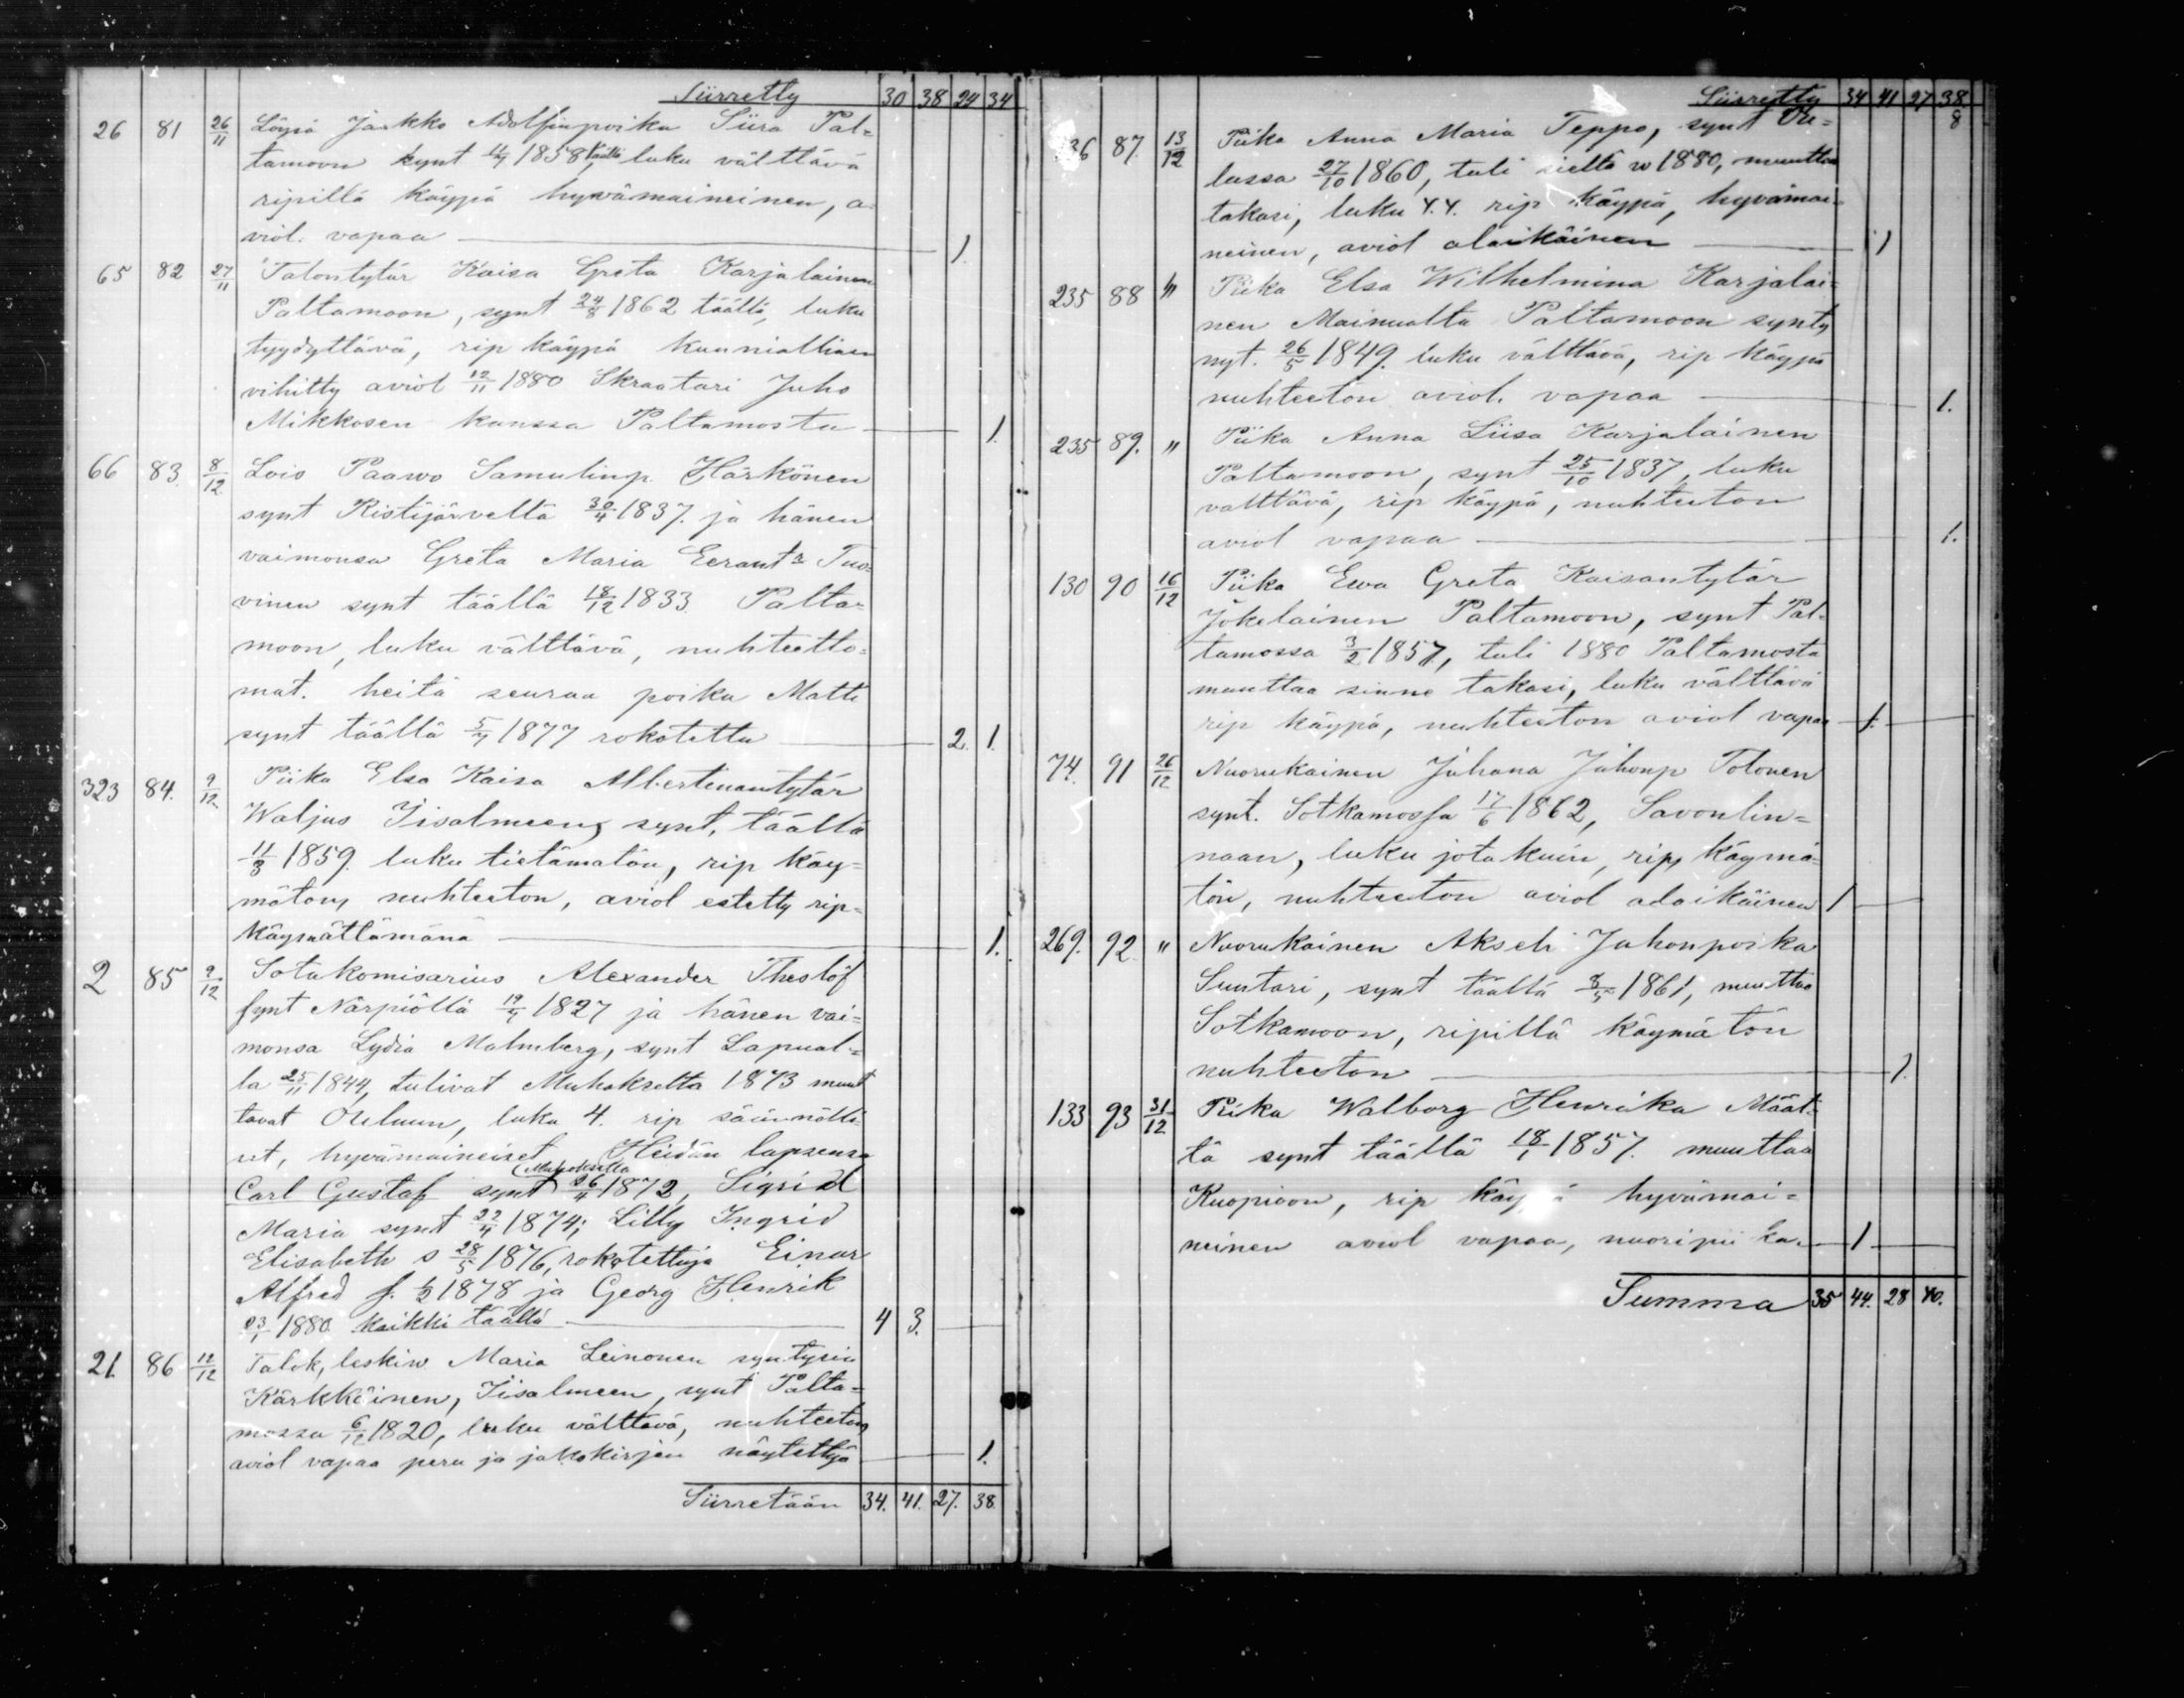 Siirretty 30 38 24 34
26 81 26/11 Löysä Jaakko Adolfinpoika Siira Pal=
tamoon synt 4/4 1858, täällä luku välttävä
ripillä käypä hyvämaineinen, a=
viol. vapaa 1.
65 82 27/11 Talontytär Kaisa Greta Karjalainen
Paltamoon, synt 24/8 1862 täällä, luku
tyydyttävä, rip käypä kunniallisen
vihitty aviol 12/11 1880 Skraatari Juho
Mikkosen kanssa Paltamosta 1.
66 83 8/12 Lois Paawo Samulinp. Härkönen
synt Ristijärvellä 30/4 1837. ja hänen
vaimonsa Greta Maria Eerantr Tuo-
vinen synt täällä 18/12 1833 Palta-
moon, luku välttävä, nuhteetto=
mat. heitä seuraa poika Matti
synt täällä 5/4 1877 rokotettu 2. 1.
323 84. 9/12 Piika Elsa Kaisa Albertinantytär
Waljus Iisalmeen, synt. täällä
11/3 1859. luku tietämätön, rip käy=
mätön, nuhteeton, aviol estetty rip=
käymättömänä 1.
2 85 9/12 Sotakomisarius Alexander Theslöf
synt Närpiöllä 19/4 1827 ja hänen vai=
monsa Lydia Malmberg, synt Lapual=
la 25/11 1844, tulivat Muhokselta 1873 muut
tavat Ouluun, luku 4. rip säännölli
set, hyvämaineiset Heidän lapsensa
Carl Gustaf synt (Muhoksella 26/4 1872, Sigrid
Maria synt 22/4 1874; Lilly Ingrid
Elisabeth s 28/5 1876, rokotettuja Einar
Alfred s. 1/2 1878 ja Georg Henrik
23/1 1880 kaikki täällä 4 3.
21. 86 12/12 Talok, leskiw Maria Leinonen syntysin
Kärkkäinen, Iisalmeen, synt Palta=
mossa 6/12 1820, luku välttävä, nuhteeton,
aviol vapaa peru ja jakokirjan näytettyä 1.
Siirretään 34. 41. 27. 38
Siirretty 34 41 27 38
8
236 87. 13/12 Piika Anna Maria Teppo, synt Ou=
lussa 27/10 1860, tuli sieltä w 1880, muuttaa
takasi, luku 4.4. rip käypä, hyvämai=
neinen, aviol alaikäinen 1
235 88 " Piika Elsa Wilhelmina Karjalai=
nen Mainualta Paltamoon synty
nyt. 26/5 1849. luku välttävä, rip käypä
nuhteeton aviol. vapaa 1.
235 89. " Piika Anna Liisa Karjalainen
Paltamoon, synt 25/10 1837, luku
valttävä, rip käypä, nuhteeton
aviol vapaa 1.
130 90 16/12 Piika Ewa Greta Kaisantytär
Jokelainen Paltamoon, synt Pal-
tamossa 3/2 1857, tuli 1880 Paltamosta
muuttaa sinne takasi, luku välttävä
rip käypä, nuhteeton aviol vapaa 1.
74. 91 26/12 Nuorukainen Juhana Juhonp Tolonen
synt. Sotkamossa 17/6 1862, Savonlin=
naan, luku jotakuin, rip, käymä=
tön, nuhteeton aviol alaikäinen 1
269. 92 " Nuorukainen Akseli Juhonpoika
Suutari, synt täällä 8/5 1861, muuttaa
Sotkamoon, ripillä käymätön
nuhteeton 1.
133 93 31/12 Piika Walborg Henriika Määt=
tä synt täällä 18/1 1857. muuttaa
Kuopioon, rip käypä hyvämai=
neinen aviol vapaa, nuoripiika. 1
Summa 35 44. 28 40.